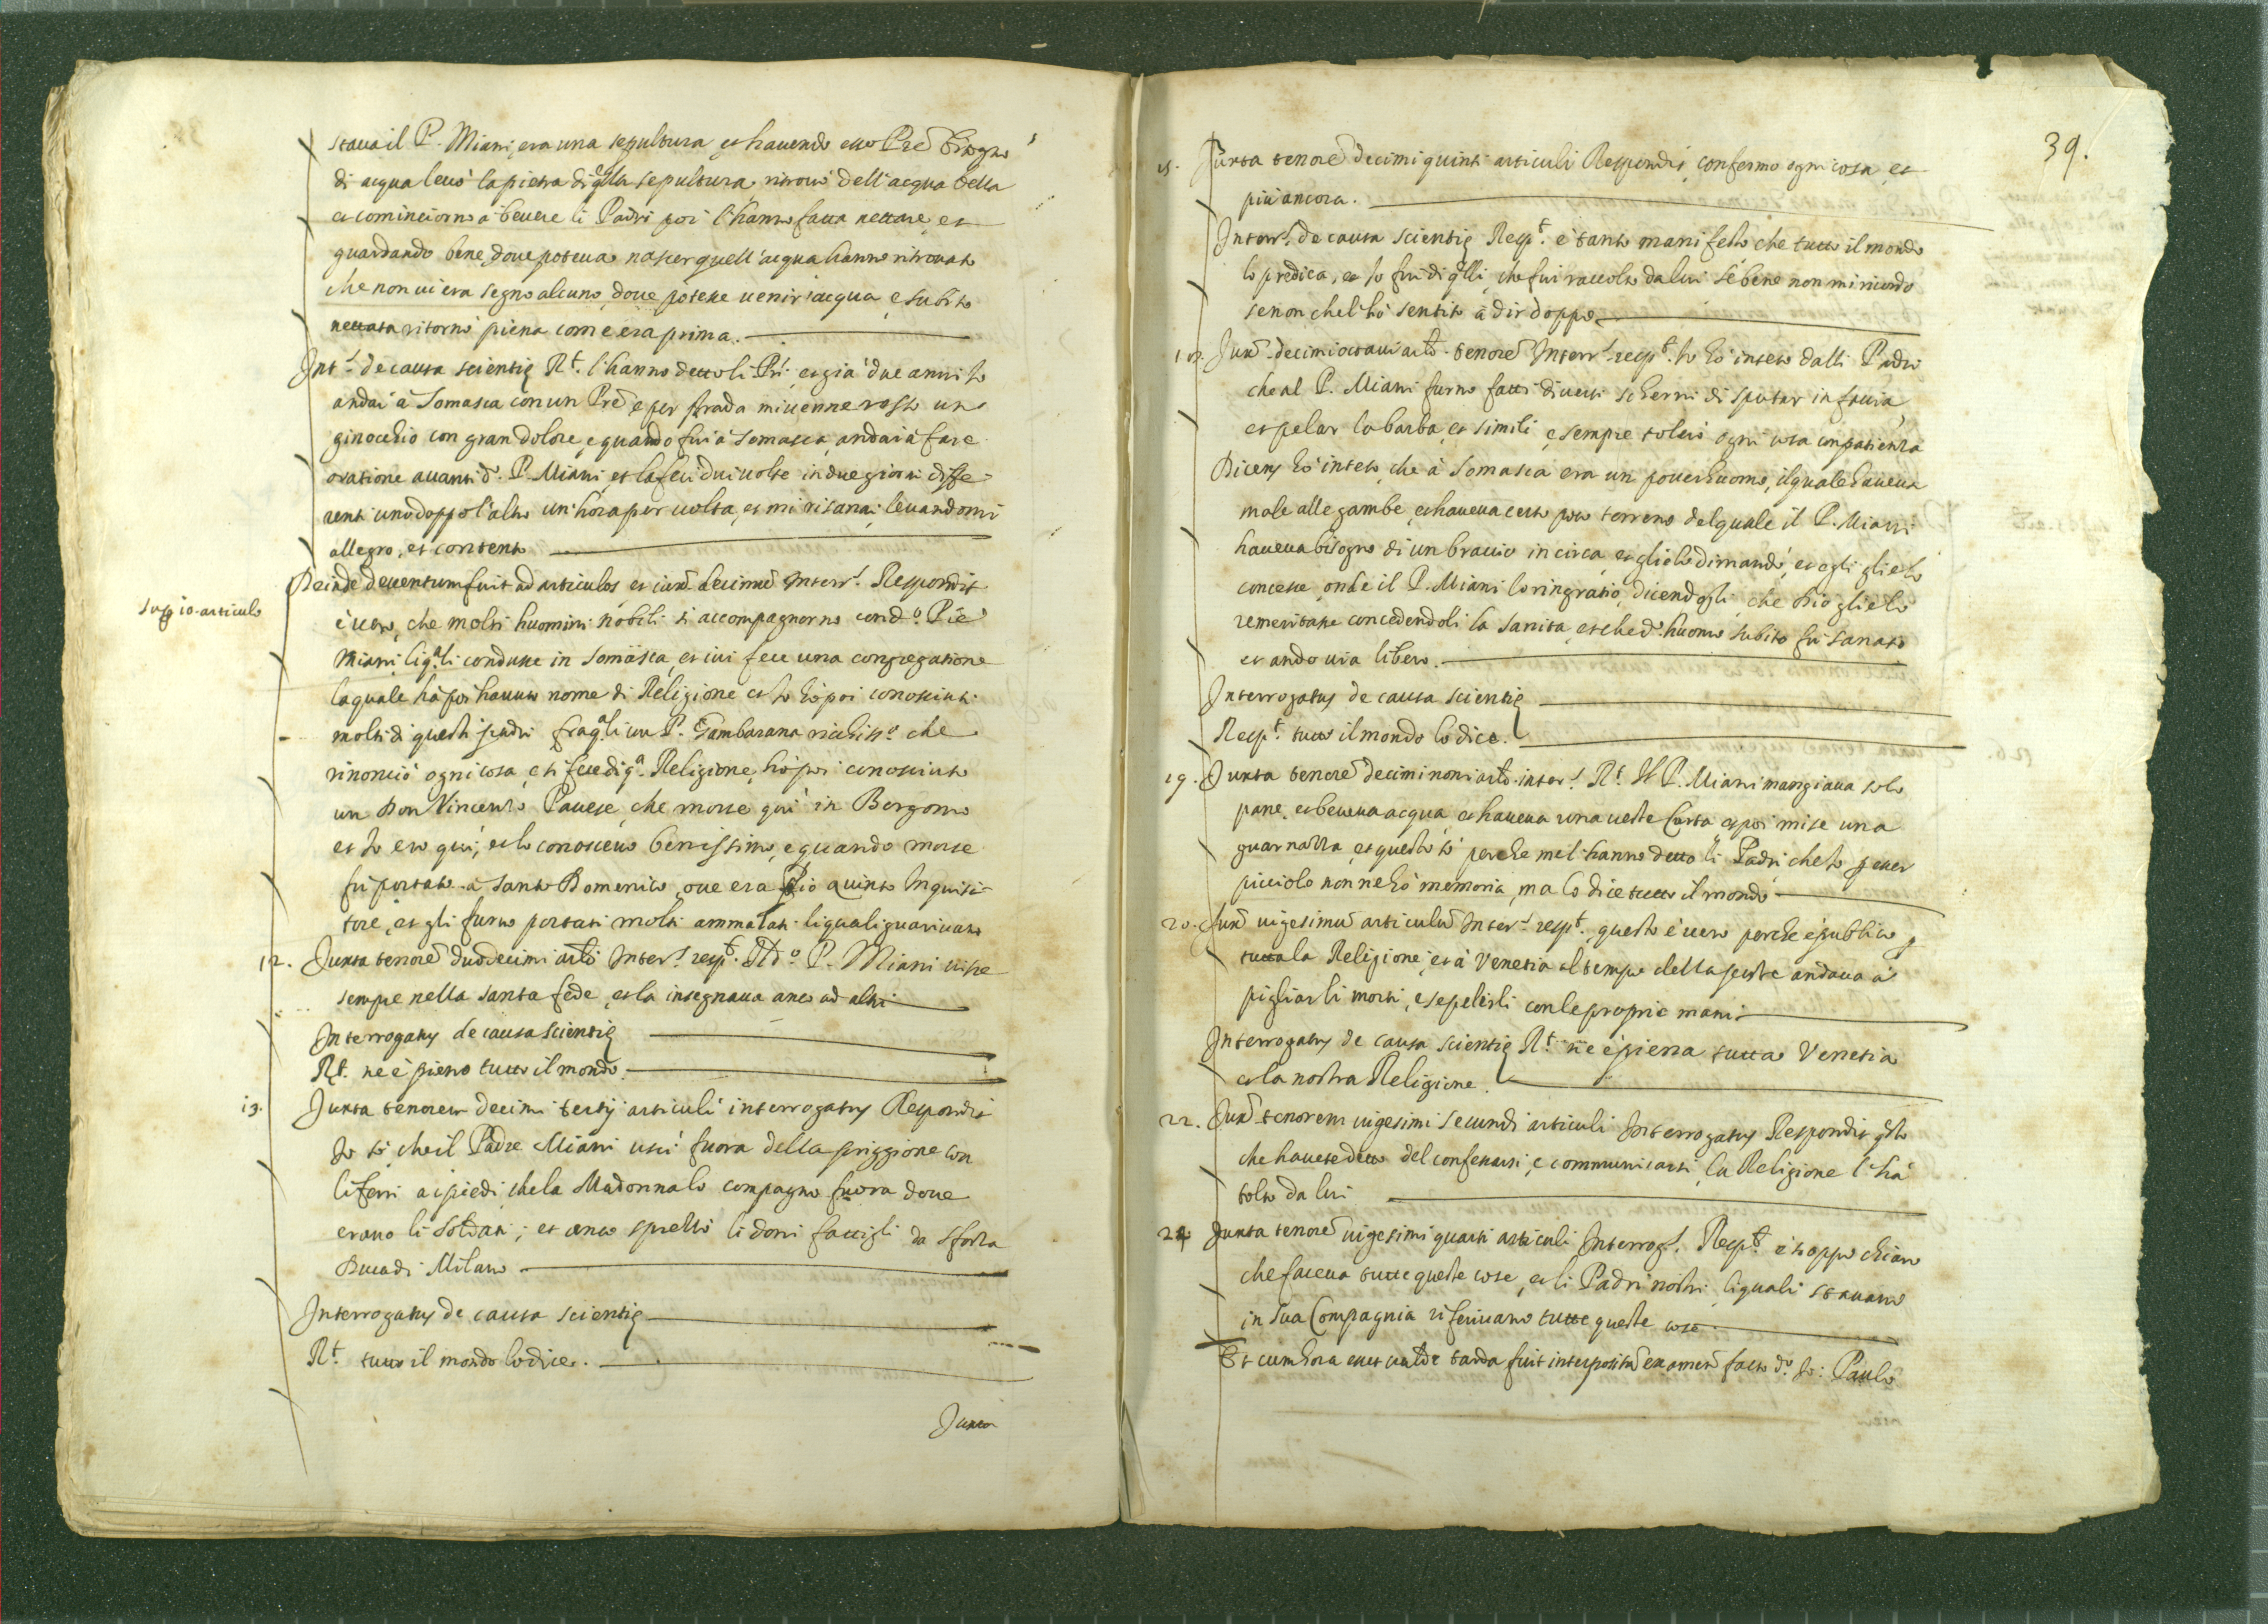 staua il P. Miani, era una sepultura, et hauendo esso Pre bisogno
di acqua leuò la pietra di qlla sepultura ritrouò dell'acqua bella
et cominciorno à beuere li Padri poi l'hanno fatta nettare, et
guardando bene doue poteua nascer quell'acqua hanno ritrouato
che non ui era segno alcuno, doue potesse uenir acqua, e subito
nettata ritornò piena come era prima.
Intr. de causa scientię Rt. l'hanno detto li Pri, et già due anni Io
andai à Somasca con un Pre e per strada mi uenne rosso un
ginocchio con gran dolore, e quando fui à Somasca, andai à fare
oratione auanti d. P. Miani, et la feci dui uolte in due giorni diffe-
renti uno doppo l'altro un'hora per uolta, et mi risanai, leuandomi
allegro, et contento
Deinde deuentum fuit ad articulos, et iuxa decimu Interr. Respondit
Sup 10. articulo
è uero, che molti huomini nobili si accompagnorno con do. Pre
Miani, li qali condusse in Somasca, et iui fece una congregatione
la quale hà poi hauuto nome di Religione et Io hò poi conosciuti
molti di questi padri fra qali un P. Gambarana richisso. che
rinonciò ogni cosa, e si fece di qa. Religione, hò poi conosciuto
un Don Vincenzo Pauese, che morse qui in Bergomo
et Io ero qui, et lo conosceuo benissimo, e quando morse
fu portato à Santo Domenico, oue era Pio quinto Inquisi-
tore, et gli furno portati molti ammalati li quali guariuano
12. Juxta tenore duodecimi arli Inter. respt. Il do. P. Miani uisse
sempre nella santa fede, et la insegnaua anco ad altri
Interrogatus de causa scientię
Rt. ne è pieno tutto il mondo.
13. Juxta tenorem decimi tertij articuli interrogatus Respondit
Io sò, che il Padre Miani uscì fuora della priggione con
li ferri a i piedi, che la Madonna lo compagnò fuora doue
erano li Soldati; et anco sprezzò li doni fattigli da Sforza
Duca di Milano
Interrogatus de causa scientię
Rt. tutto il mondo lo dice.
Juxta
39.
15. Juxta tenore decimi quinti articuli Respondit, confermo ogni cosa, et
più ancora.
Interr. de causa scientię Respt. è tanto manifesto che tutto il mondo
lo predica, et Io fui di qlli, che fui raccolto da lui se bene non mi ricordo
se non che l'hò sentito à dir doppo
18. Juxa decimi octaui arlo. tenore Interr. respt. Io hò inteso dalli Padri
che al P. Miani furno fatti diuersi scherni di sputar in faccia,
et pelar la barba, et simili, e sempre tolerò ogni cosa con patienza
Dicens hò inteso, che à Somasca era un pouer huomo, il quale haueua
male alle gambe, et haueua certo poco terreno del quale il P. Miani
haueua bisogno di un braccio in circa, et gli lo dimandò, et egli glielo
concesse, onde il P. Miani lo ringratiò, dicendogli, che Dio glielo
remeritasse concedendoli la sanità, et che do. huomo subito fu sanato
et andò uia libero.
Interrogatus de causa scientię
Respt. tutto il mondo lo dice.
19. Juxta tenore decimi noni arlo. inter. Rt. Il P. Miani mangiaua solo
pane, et beueua acqua, et haueua una ueste curta et poi mise una
guarnazza, et questo sò perche mel'hanno detto li Padri che Io p esser
picciolo non ne hò memoria, ma lo dice tutto il mondo
20. Juxa uigesimu articulu Inter. respt. questo è uero perche è publico p
tutta la Religione, et à Venetia al tempo della peste andaua à
pigliar li morti, e sepelirli con le proprie mani
Interrogatus de causa scientię Rt. ne è piena tutta Venetia
et la nostra Religione.
22. Juxa tenorem uigesimi secundi articuli Interrogatus Respondit qsto
che hauete detto del confessarsi, e communicarsi, la Religione l'hà
tolto da lui
24 Juxta tenore uigesimi quarti articuli Interrog. Respt. è troppo chiaro
che faceua tutte queste cose, et li Padri nostri, li quali stauano
in sua Compagnia riferiuano tutte queste cose.
Et cum hora esset ualde tarda fuit interpositu examen facto do. Io: Paulo